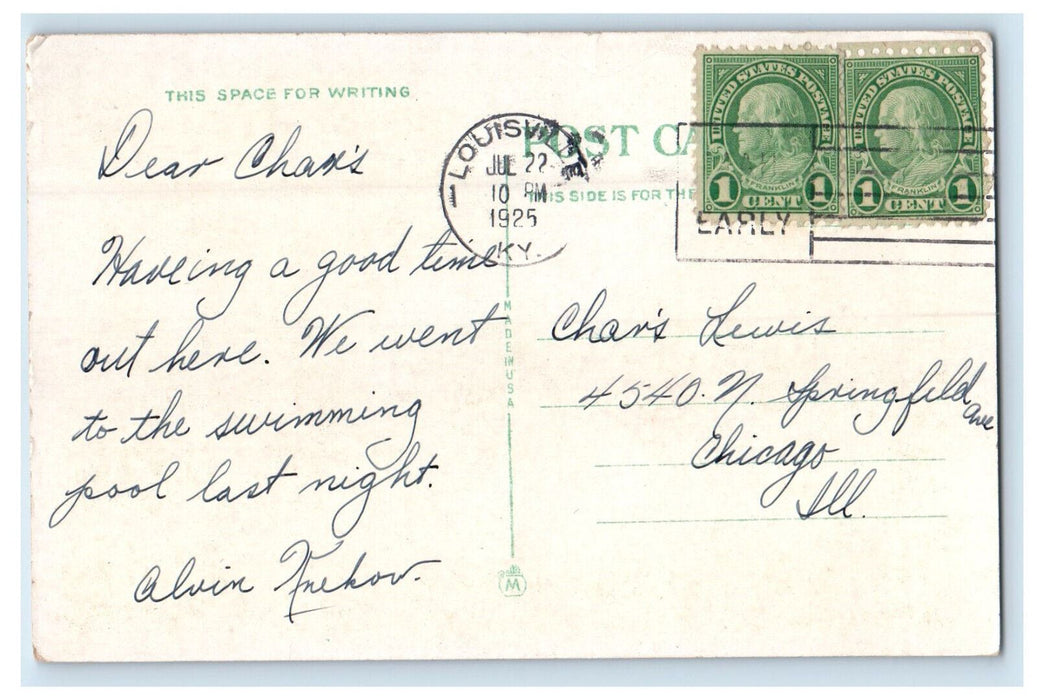 THIS SPACE FOR WRITING
Dear Char's
Haveing a good time
out here. We went
to the swimming
pool last night.
Alvin
POST CA
THIS SIDE IS FOR THE
LOUISVILLE
JUL 22
10 PM
1925
KY.
EARLY
UNITED STATES POSTAGE
FRANKLIN
1 CENT 1
UNITED STATES POSTAGE
FRANKLIN
1 CENT 1
MADE IN USA
Char's Lewis
4540. N. Springfield
ave
Chicago
Ill.
M